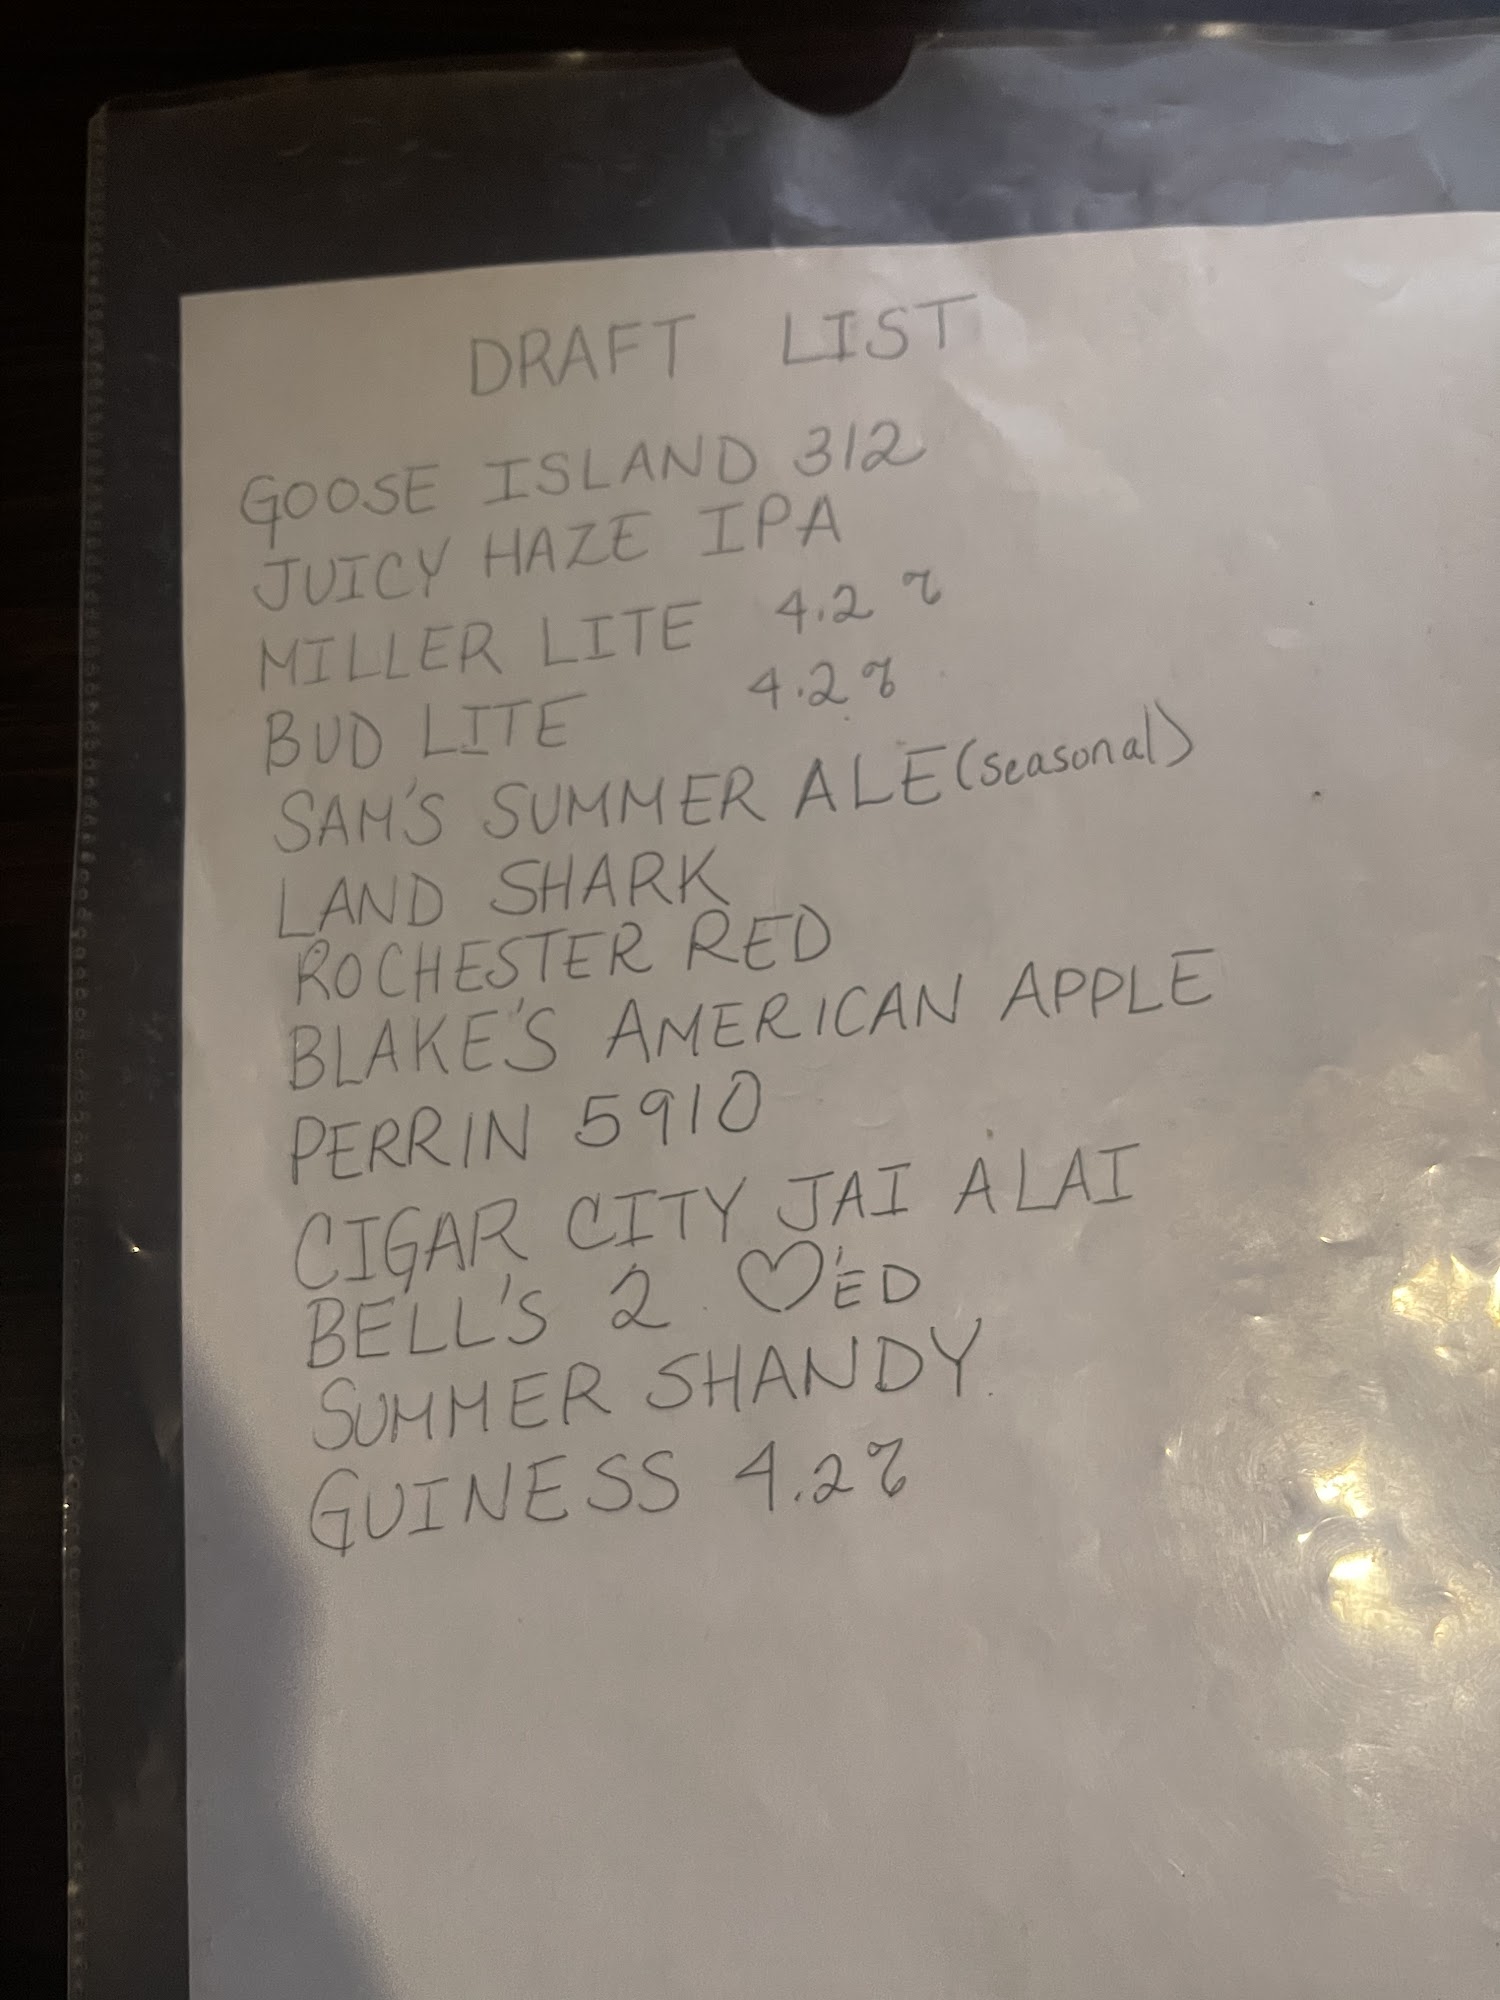 DRAFT LIST
GOOSE ISLAND 312
JUICY HAZE IPA
MILLER LITE 4.2 %
BUD LITE 4.2 %
SAM'S SUMMER ALE (seasonal)
LAND SHARK
ROCHESTER RED
BLAKE'S AMERICAN APPLE
PERRIN 5910
CIGAR CITY JAI ALAI
BELL'S 2 ♡'ED
SUMMER SHANDY
GUINESS 4.2%